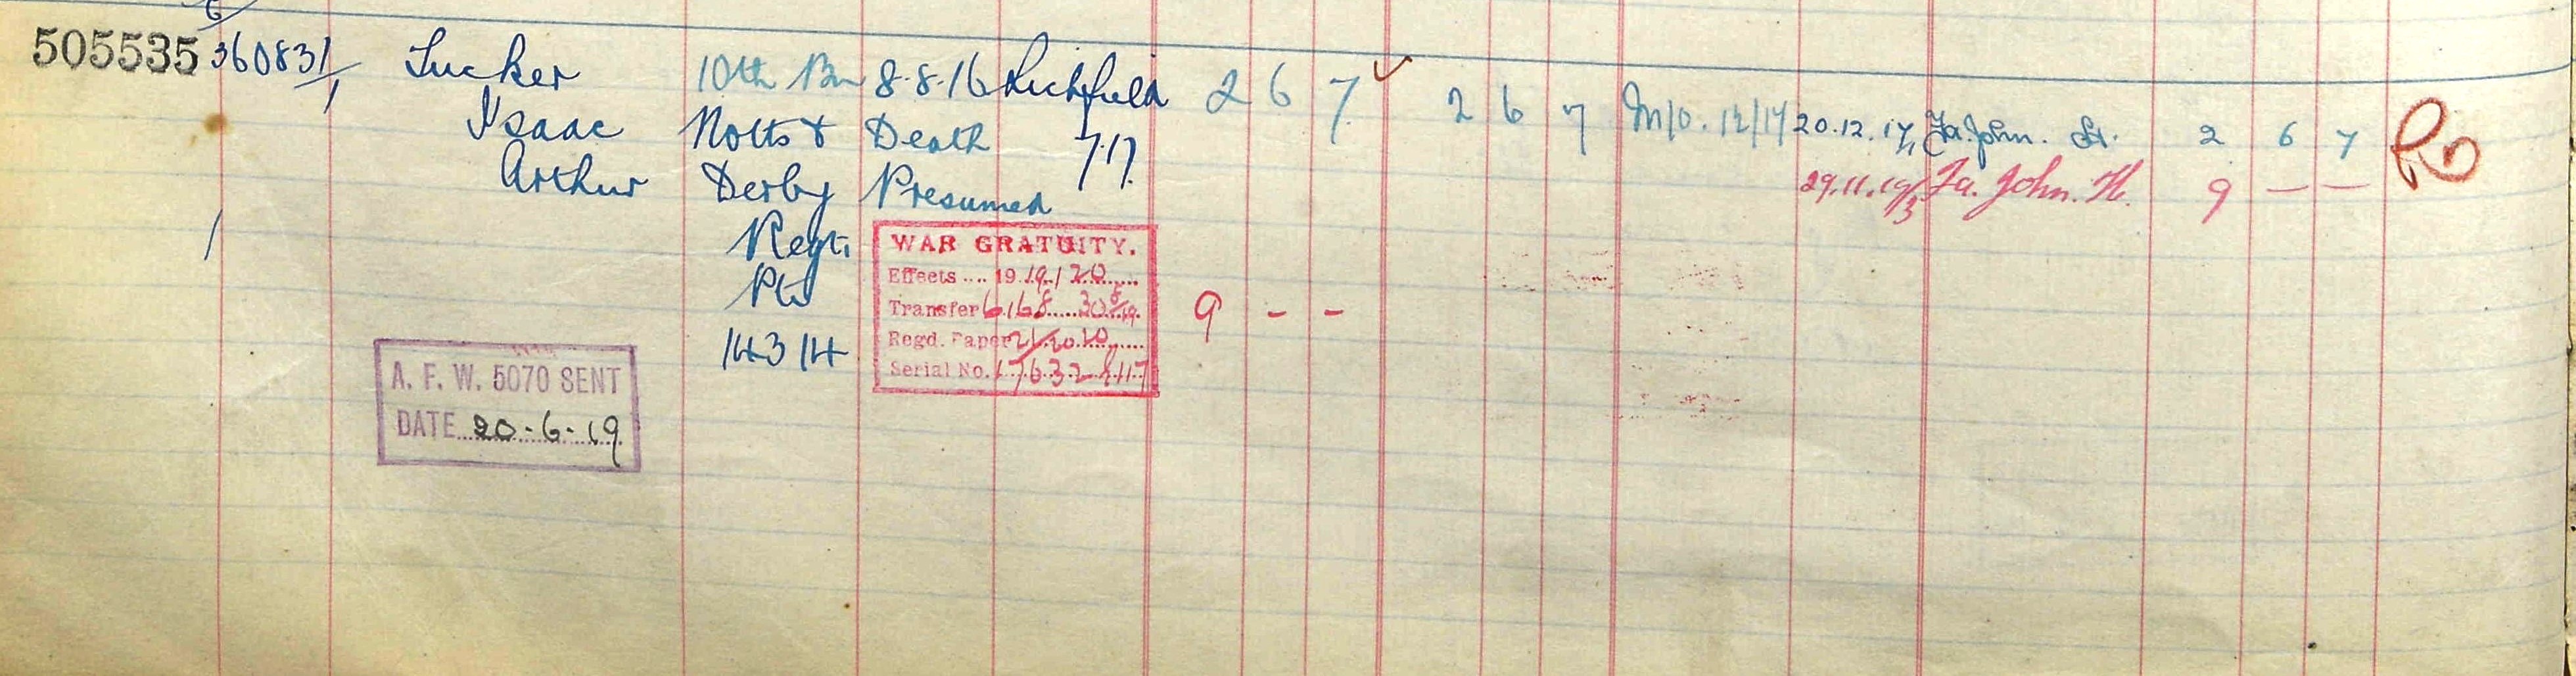 505535 360831/1 Tucker 10th Bn 8.8.16 Lichfield 2 6 7 2 6 7 M/O. 12/17 20.12.17 Fa. John. H. 2 6 7
Isaac Notts & Death 7.17.
Arthur Derby Presumed 29.11.19/3 Fa. John. H. 9 — —
Regt.
Pte
14314
WAR GRATUITY.
Effects .... 1919/20
Transfer 6168 30 9 - -
Regd. Paper
Serial No.
A. F. W. 5070 SENT
DATE 20-6-19